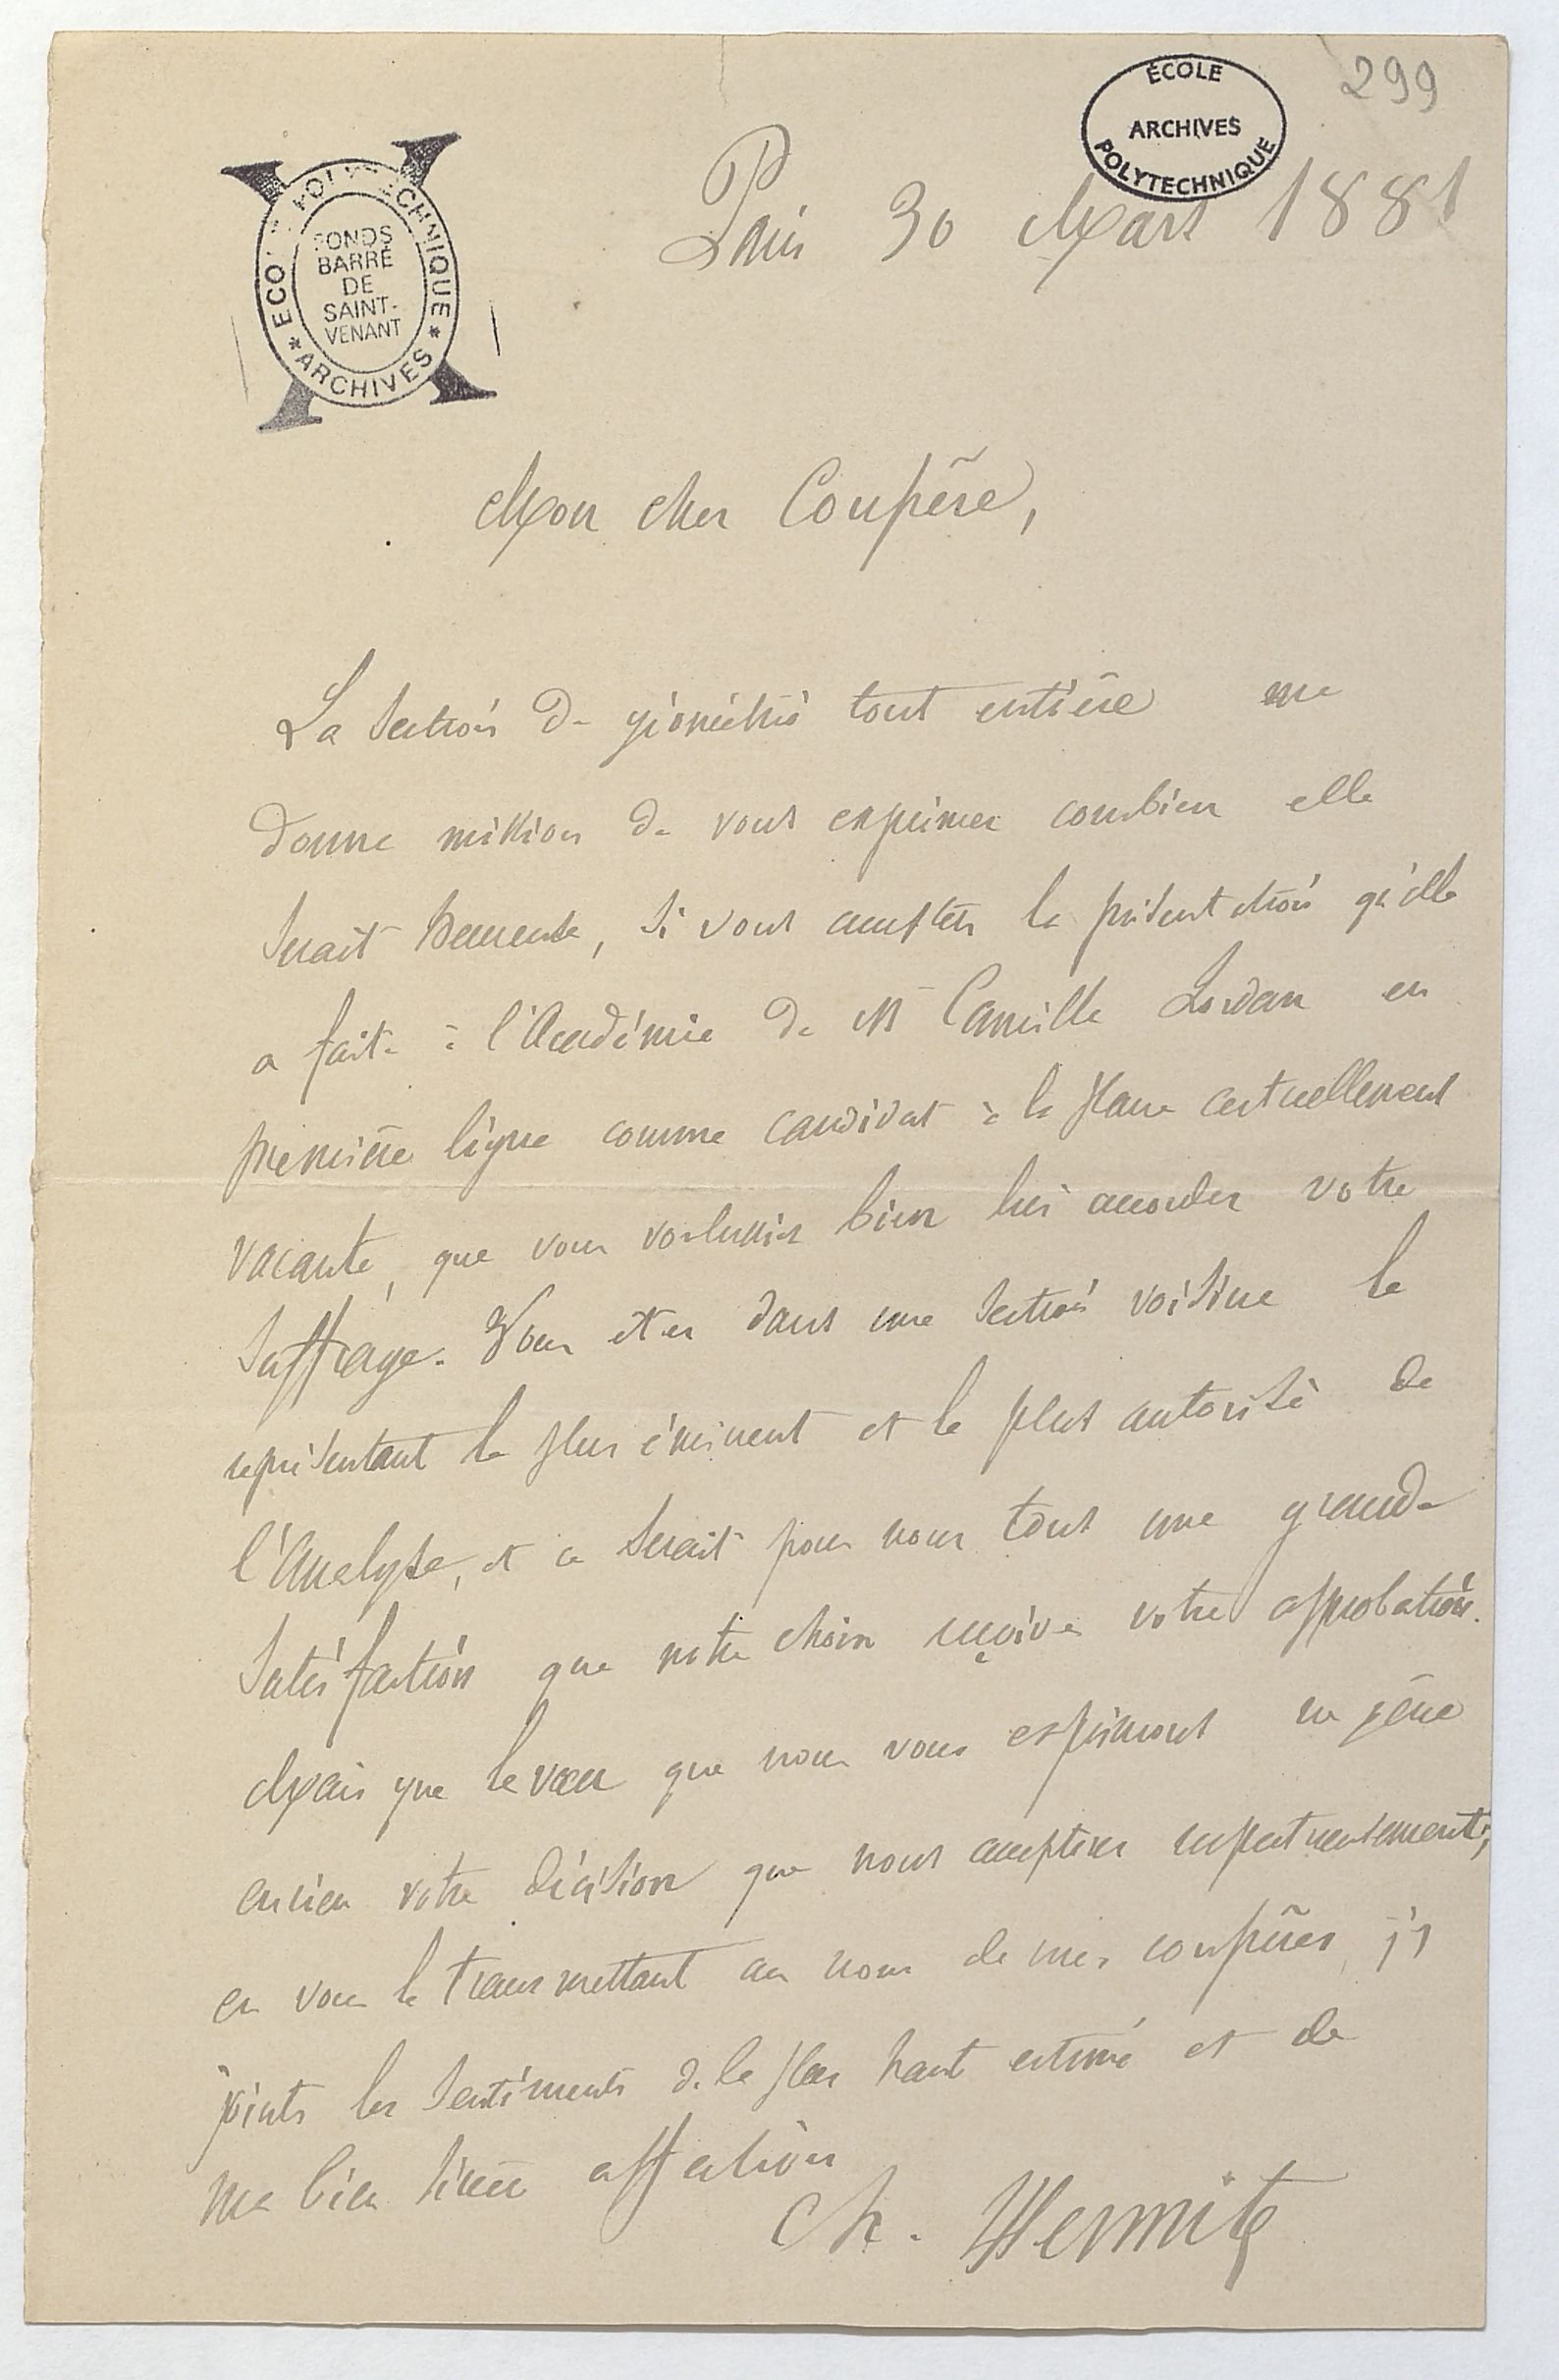 299
ÉCOLE
ARCHIVES
POLYTECHNIQUE
ECOLE POLYTECHNIQUE
FONDS
BARRÉ
DE
SAINT-
VENANT
* ARCHIVES *
Paris 30 Mars 1881
Mon cher Confrère,
La Section de géométrie tout entière me
donne mission de vous exprimer combien elle
serait heureuse, si vous acceptez la présentation qu'elle
a faite à l'Académie de Mr Camille Jordan en
première ligne comme candidat à la place actuellement
vacante, que vous voulussiez bien lui accorder votre
suffrage. Vous êtes dans une section voisine le
représentant le plus éminent et le plus autorisé de
l'Analyse, et ce serait pour nous tous une grande
satisfaction que notre choix reçoive votre approbation.
Mais que le vœu que nous vous exprimons ne gêne
en rien votre décision que nous acceptons respectueusement;
en vous le transmettant au nom de mes confrères, j'y
joints les sentiments de la plus haut estime et de
ma bien sincère affection
Ch. Hermite